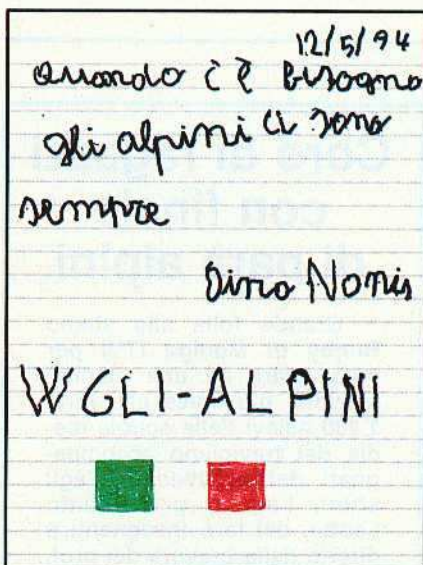 12/5/94
quando c'è bisogno
gli alpini ci sono
sempre
Dino Nonis
W GLI-ALPINI